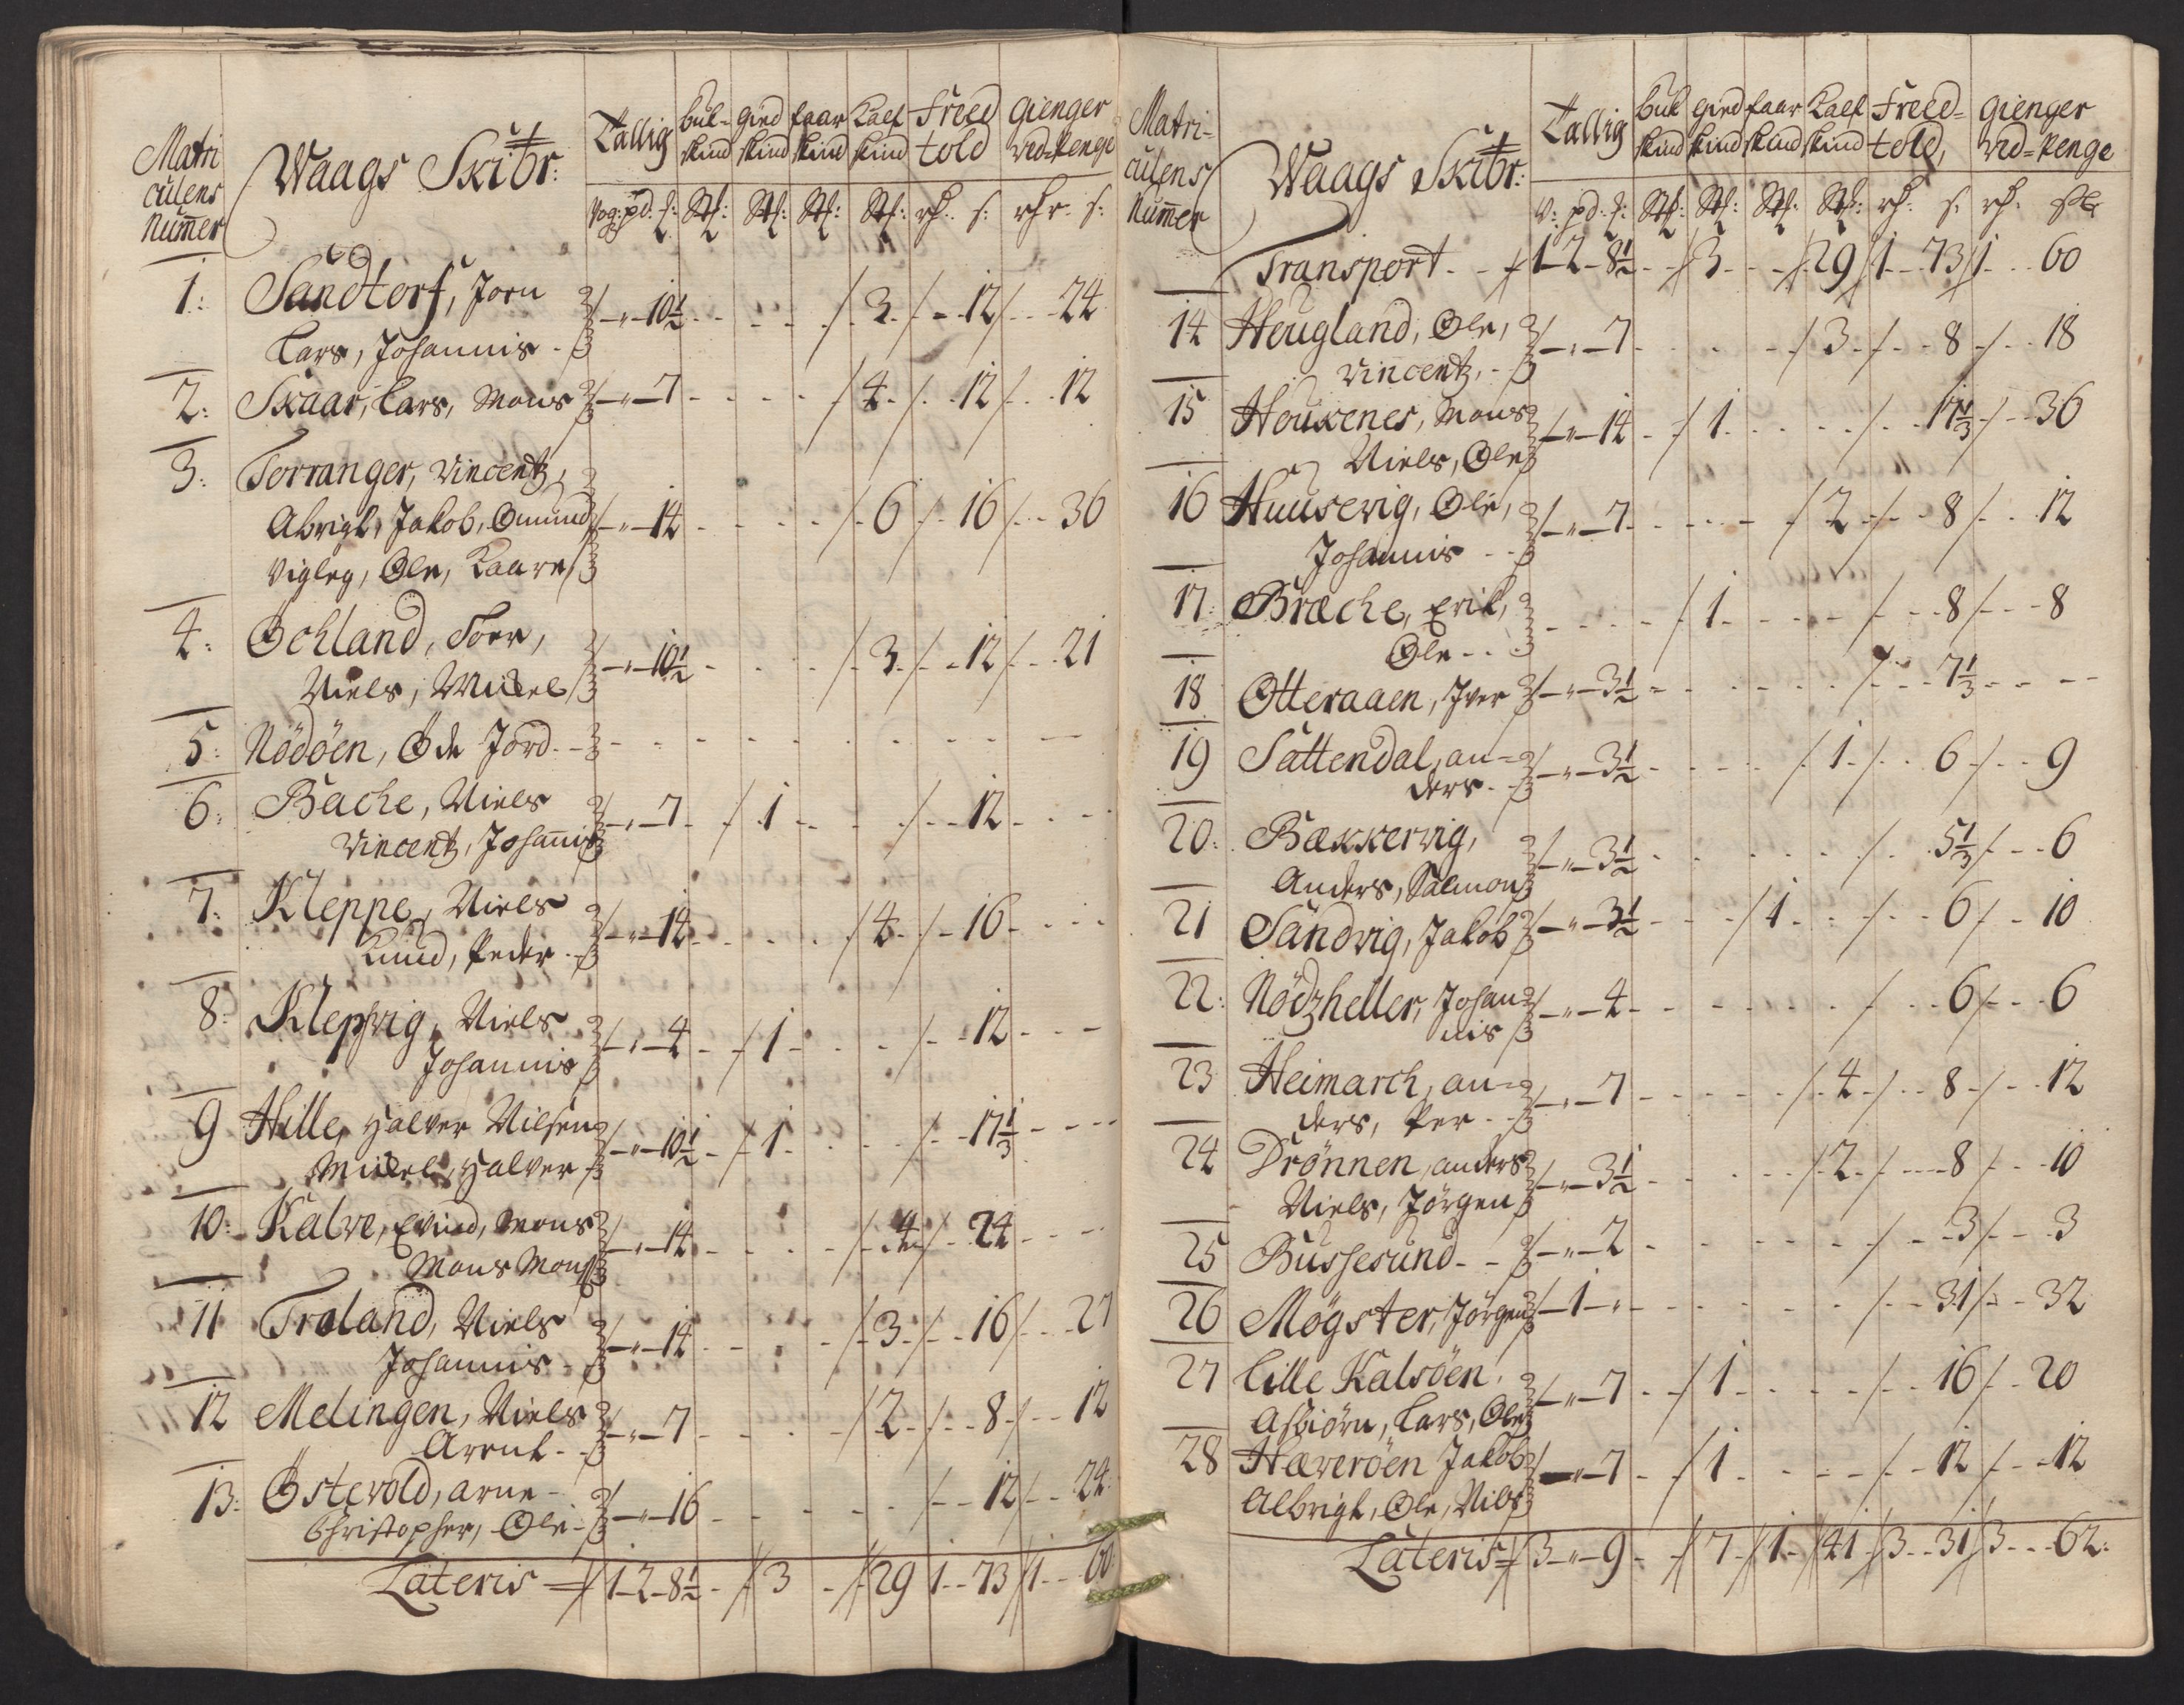 Matri
culens
Num̅er
Waags Skibr:
Tallig
buk-
skind
gied
skind
faar
skind
Kalf
skind
Freed
told
gienger
ved-penge
Vog: pd: ℔: Stk: Stk: Stk: Stk: rd: s: rdr. s:
1: Sandtorf, Joen
Lars, Johannis - - „ - 10½ 3 - 12 - 24
2: Skaar, Lars, Mons - „ - 7 4 - 12 - 12
3: Torranger, Vincentz,
Abrigt, Jakob, Omund - „ - 14 6 - 16 - 36
Vigleg, Ole, Kaare
4: Ochland, Toer,
Niels, Mickel - „ - 10½ 3 - 12 - 21
5: Nödöen, Öde Jord -
6: Bache, Niels
Vincentz, Johan̅is - „ - 7 1 - 12
7: Kleppe, Niels
Knud, Peder - „ - 14 4 - 16
8: Klepsvig, Niels
Johannis - „ - 4 1 - 12
9 Hille, Halver Nilsen
Mickel, Halver - „ - 10½ 1 - 17⅓
10: Kalve, Evind, Mons
Mons Mons - „ - 14 4 - 24
11 Troland, Niels
Johannis - „ - 14 3 - 16 - 27
12 Melingen, Niels
Arent - „ - 7 2 - 8 - 12
13: Östevold, Arne -
Christopher, Ole - „ - 16 - 12 - 24
Lateris 1 - 2 - 8½ 3 29 1 - 73 1 - 60
Matri-
culens
Num̅er
Waags Skibr:
Tallig
buk
skind
gied
skind
faar
skind
Kalf
skind
Freed-
told,
gienger
ved-penge
V: pd: ℔: Stk: Stk: Stk: Stk: rd: s: rd: s:
Transport - - 1 - 2 - 8½ 3 29 1 - 73 1 - 60
14 Heugland, Ole,
Vincentz, - „ - 7 3 - 8 - 18
15 Houxenes, Mons
Niels, Ole - „ - 14 1 - 17⅓ - 36
16 Huusevig, Ole,
Johannis - „ - 7 2 - 8 - 12
17: Bræche, Erik,
Ole - - 1 - 8 - 8
18 Otteraaen, Iver - „ - 3½ - 7⅓
19 Sättendal, an=
ders - „ - 3½ 1 - 6 - 9
20: Bækkervig,
Anders, Salmon - „ - 3½ - 5⅓ - 6
21 Sandvig, Jakob - „ - 3½ 1 - 6 - 10
22: Nödzheller, Johan
nis - „ - 4 - 6 - 6
23 Heimarch, an=
ders, Per - „ - 7 4 - 8 - 12
24 Drönnen, anders
Niels, Jörgen - „ - 3½ 2 - 8 - 10
25 Bussesund - - „ - 2 - 3 - 3
26 Mögster, Jörgen - 1 - „ - 31 - 32
27 Lille Kalsöen,
Asbiörn, Lars, Ole - „ - 7 1 - 16 - 20
28 Hæveröen Jakob
Albrigt, Ole, Nils - „ - 7 1 - 12 - 12
Lateris 3 - „ - 9 7 1 41 3 - 31 3 - 62: